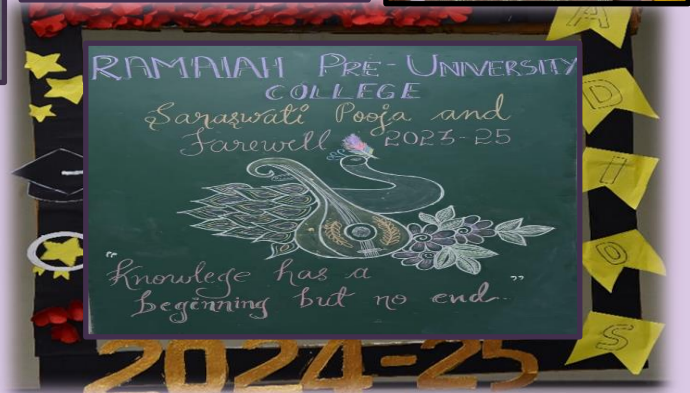 RAMAIAH PRE-UNIVERSITY
COLLEGE
Saraswati Pooja and
Farewell 2023-25
"Knowlege has a
beginning but no end."
A
D
I
O
S
2024-25